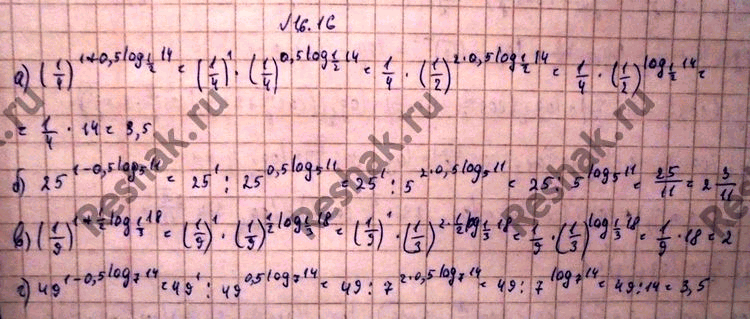 №16.16
а) (1/4)^(1+0,5log_{1/2}14) = (1/4)^1 · (1/4)^(0,5log_{1/2}14) = 1/4 · (1/2)^(2·0,5log_{1/2}14) = 1/4 · (1/2)^(log_{1/2}14) =
= 1/4 · 14 = 3,5
б) 25^(1-0,5log_5 11) = 25^1 : 25^(0,5log_5 11) = 25^1 : 5^(2·0,5log_5 11) = 25 : 5^(log_5 11) = 25/11 = 2 3/11
в) (1/9)^(1+1/2 log_{1/3}18) = (1/9)^1 · (1/9)^(1/2 log_{1/3}18) = (1/9)^1 · (1/3)^(2·1/2 log_{1/3}18) = 1/9 · (1/3)^(log_{1/3}18) = 1/9 · 18 = 2
г) 49^(1-0,5log_7 14) = 49^1 : 49^(0,5log_7 14) = 49 : 7^(2·0,5log_7 14) = 49 : 7^(log_7 14) = 49 : 14 = 3,5
Reshak.ru
Reshak.ru
Reshak.ru
Reshak.ru
Reshak.ru